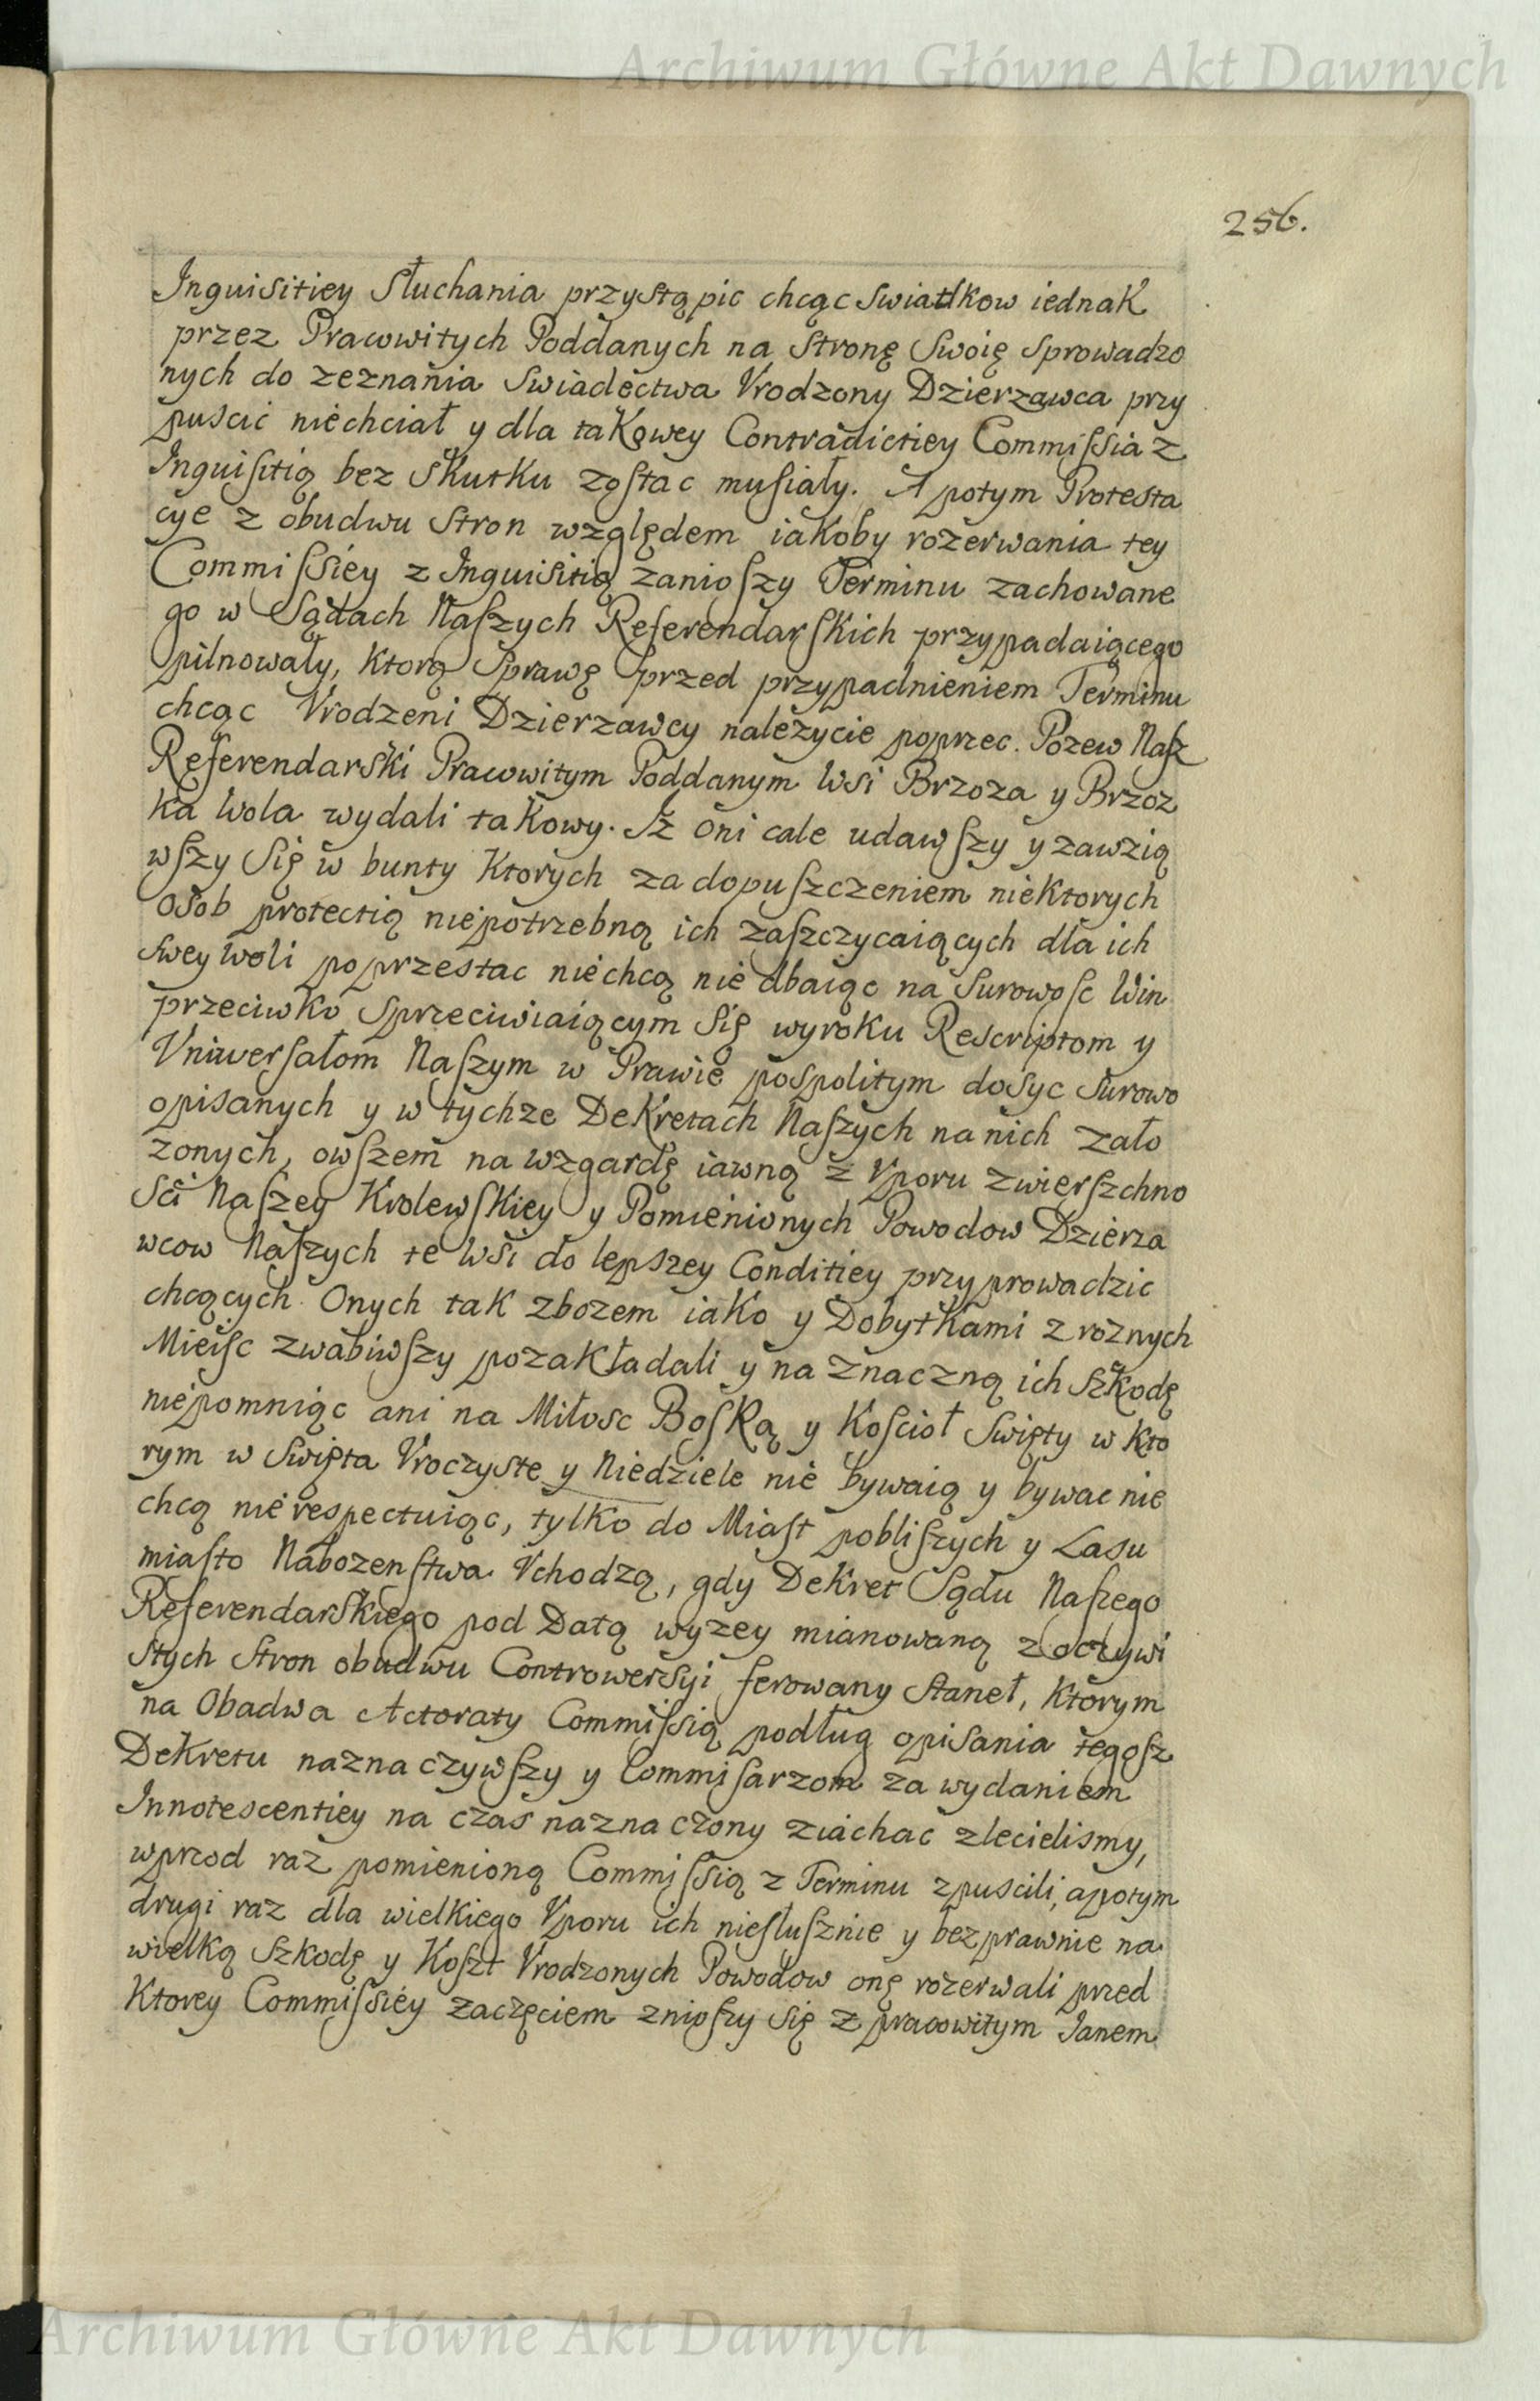 Archiwum Główne Akt Dawnych
256.
Inquisitiey Słuchania przystąpic chcąc swiadkow iednak
przez Pracowitych Poddanych na stronę Swoię Sprowadzo
nych do zeznania Swiadectwa Vrodzony Dzierzawca przy
puscic niechciał y dla takowey Contradictiey Commissia z
Inquisitią bez Skutku zostac musiały. A potym Protesta
cye z obudwu Stron względem iakoby rozerwania tey
Commissiey z Inquisitią zaniosszy Terminu zachowane
go w Sądach Naszych Referendarskich przypadaiącego
pilnowały, ktorą Sprawę przed przypadnieniem Terminu
chcąc Vrodzeni Dzierzawcy nalezycie poprzec. Pozew Nasz
Referendarski Pracowitym Poddanym Wsi Brzoza y Brzoz
ka Wola wydali takowy. Iz oni cale udawszy y zawzią
wszy Się w bunty Ktorych za dopuszczeniem niektorych
Osob protectią niepotrzebną ich zaszczycaiących dla ich
Swey Woli poprzestac niechcą nie dbaiąc na Surowosc Win
przeciwko Sprzeciwiaiącym Się wyroku Rescriptom y
Vniwersałom Naszym w Prawie pospolitym dosyc Surowo
opisanych y w tychze Dekretach Naszych na nich zało
zonych, owszem na wzgardę iawną z Vporu zwierszchno
sci Naszey Krolewskiey y Pomienionych Powodow Dzierza
wcow Naszych te Wsi do lepszey Conditiey przyprowadzic
chcących. Onych tak zbozem iako y Dobytkami z roznych
Mieisc zwabiwszy pozakładali y na znaczną ich Szkodę
niepomniąc ani na Miłosc Boską y Koscioł Swięty w Kto
rym w Swięta Vroczyste y Niedziele nie bywaią y bywac nie
chcą nie respectuiąc, tylko do Miast pobliszych y Lasu
miasto Nabozenstwa Vchodzą, gdy Dekret Sądu Naszego
Referendarskiego pod Datą wyzey mianowaną z oczywi
stych Stron obudwu Controwersyi ferowany Stanet, Ktorym
na Obadwa Actoraty Commissią podług opisania tegosz
Dekretu naznaczywszy y Commisarzom za wydaniem
Innotescentiey na czas naznaczony ziachac zlecielismy,
wprzod raz pomienioną Commissią z Terminu zpuscili, apotym
drugi raz dla wielkiego Vporu ich niesłusznie y bezprawnie na
wielką Szkodę y Koszt Vrodzonych Powodow onę rozerwali przed
Ktorey Commissiey zaczęciem zniosszy Się z pracowitym Ianem
Archiwum Główne Akt Dawnych